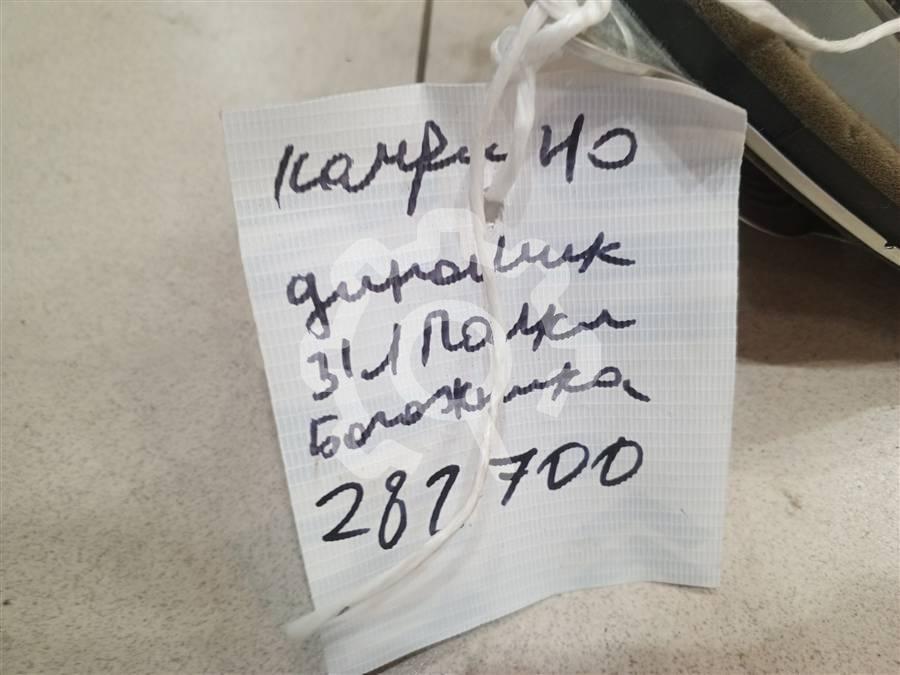 Камри 40
динамик
З/Л Полки
Багажника
281700